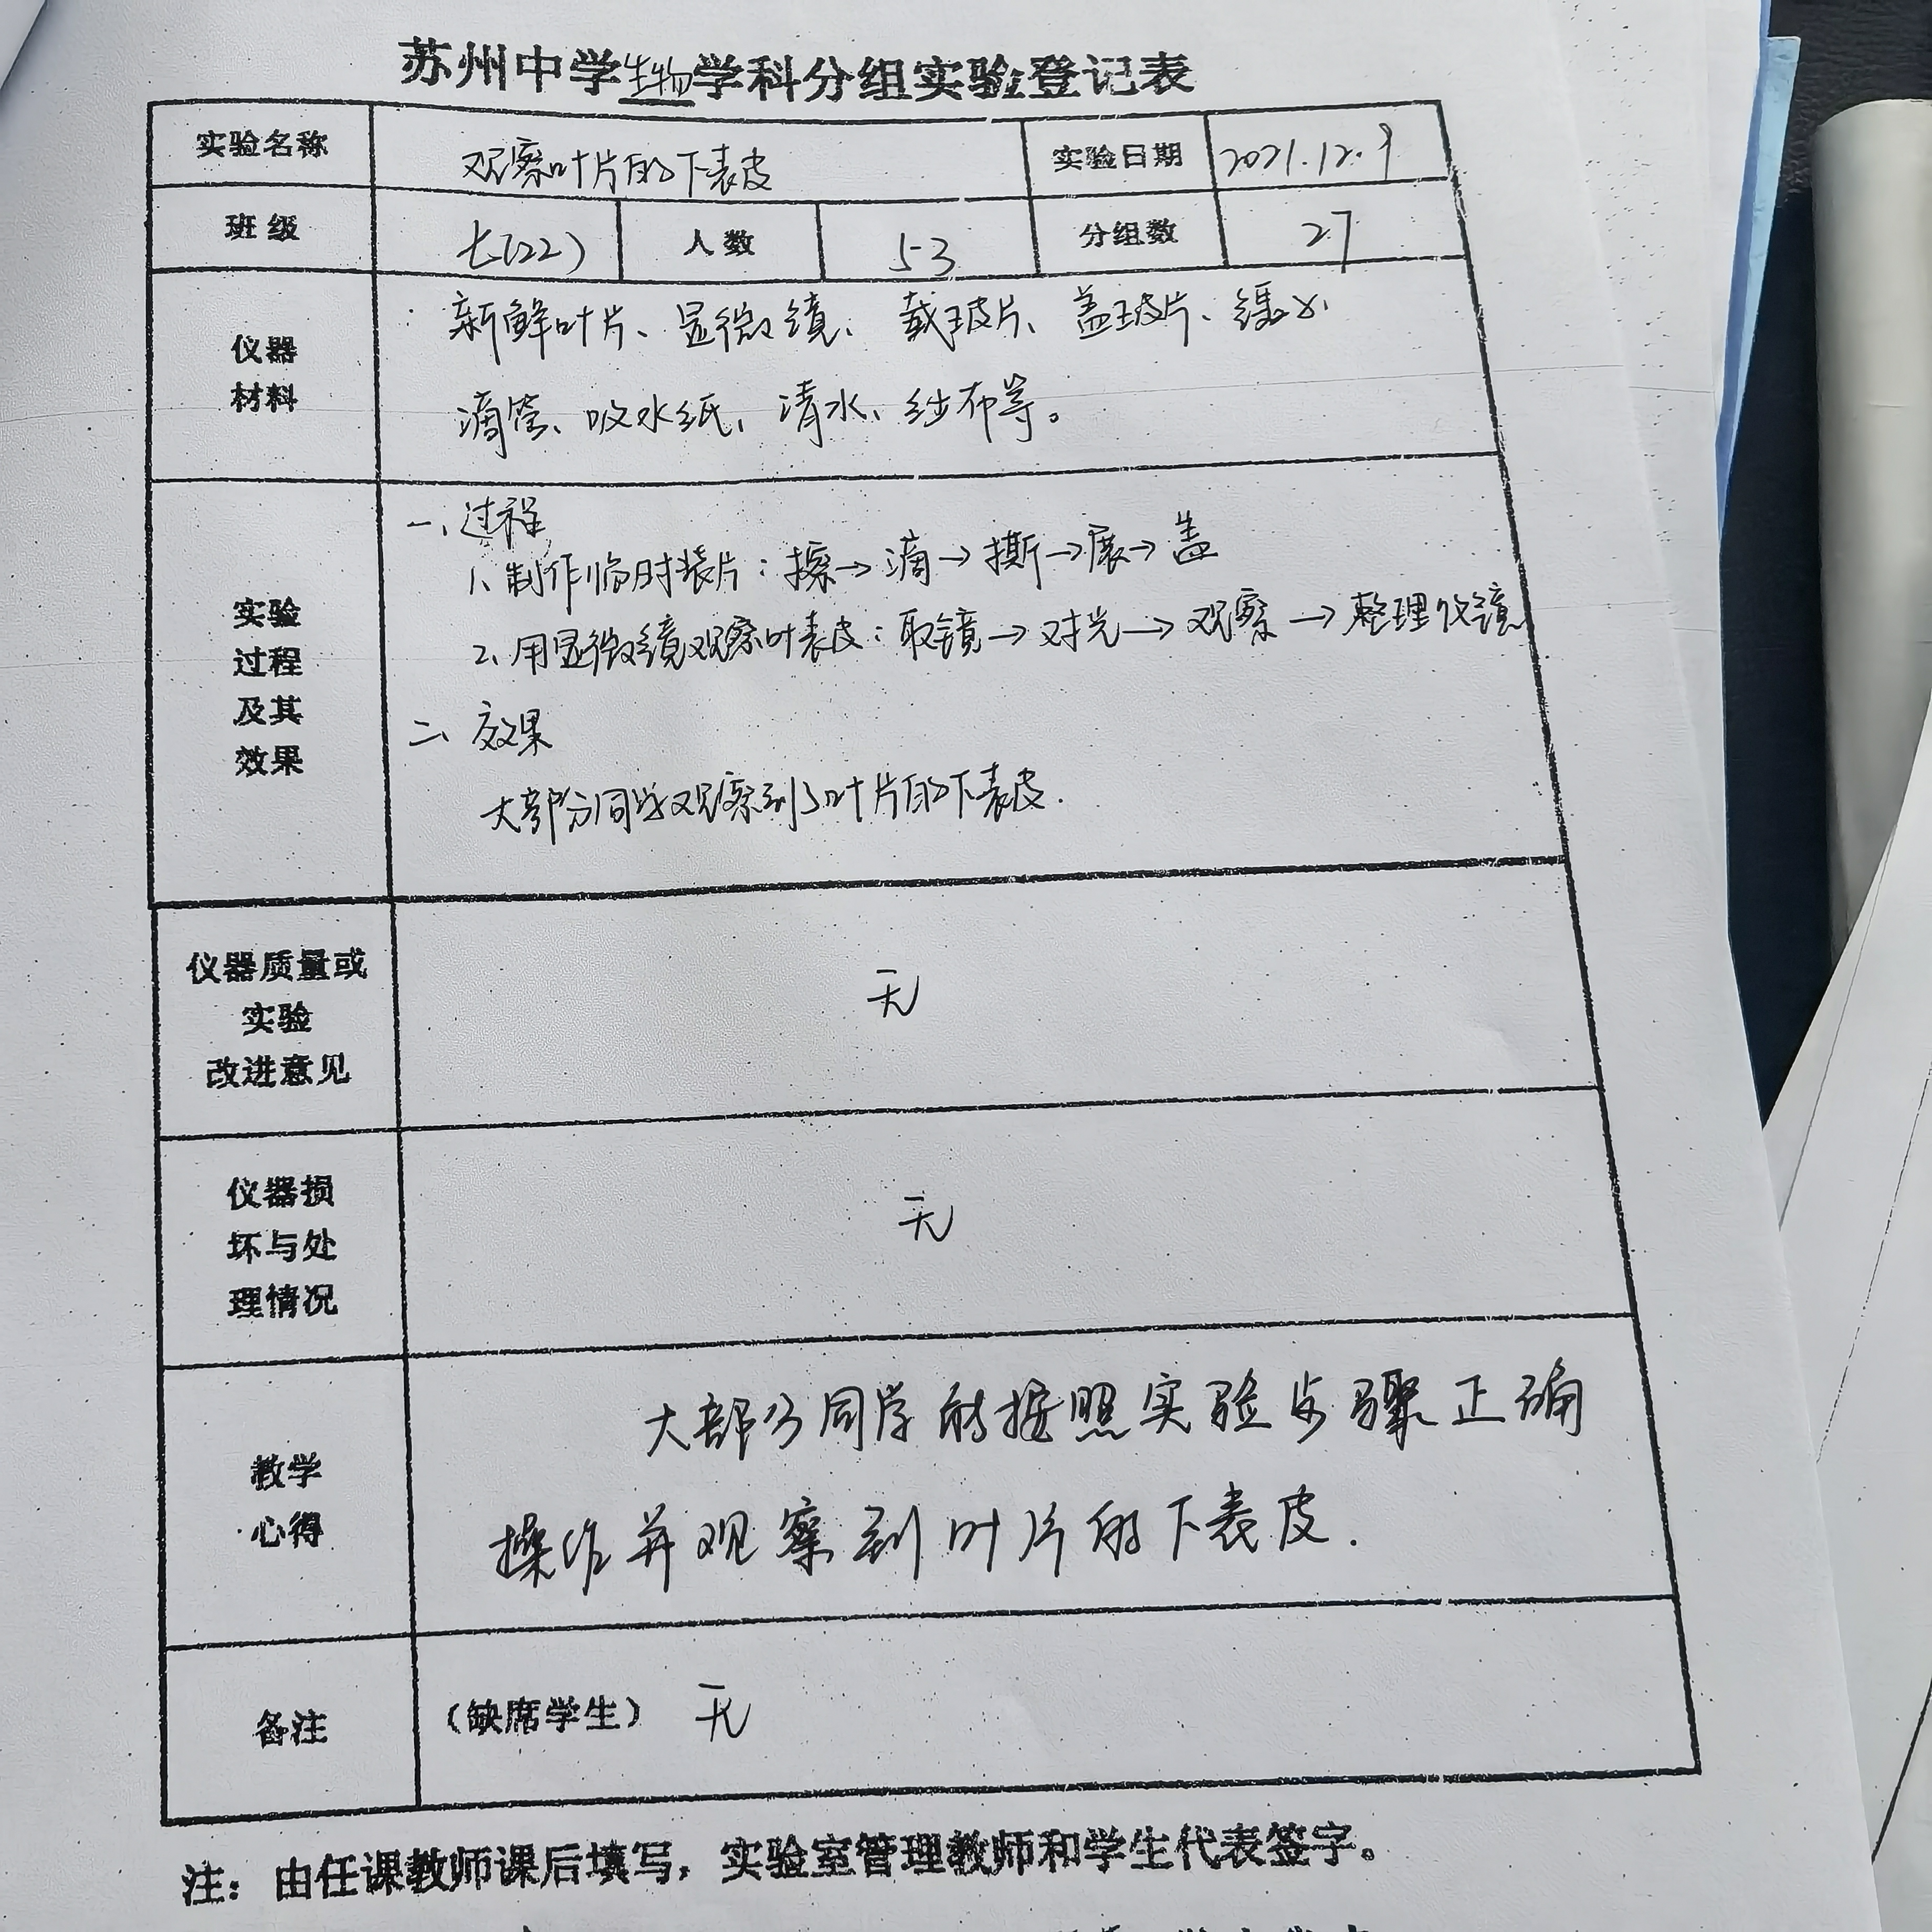 苏州中学生物学科分组实验登记表
实验名称 观察叶片的下表皮 实验日期 2021.12.9
班级 七(22) 人数 53 分组数 27
仪器
材料
新鲜叶片、显微镜、载玻片、盖玻片、
滴管、吸水纸、清水、纱布等。
实验
过程
及其
效果
一、过程
1、制作临时装片：擦→滴→撕→展→盖
2、用显微镜观察叶表皮：取镜→对光→观察→整理仪镜
二、效果
大部分同学观察到了叶片的下表皮.
仪器质量或
实验
改进意见
无
仪器损
坏与处
理情况
无
教学
心得
大部分同学能按照实验步骤正确
操作并观察到叶片的下表皮.
备注 (缺席学生) 无
注：由任课教师课后填写，实验室管理教师和学生代表签字。